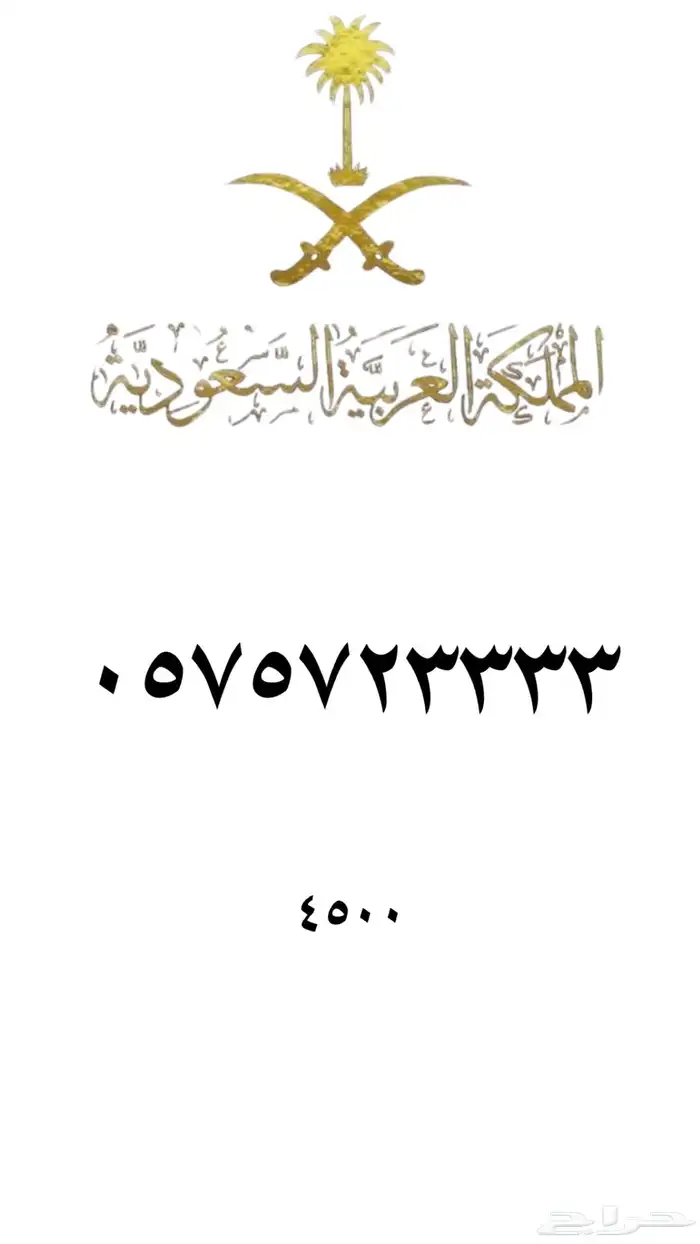 المملكة العربية السعودية
٠٥٧٥٧٢٣٣٣٣
٤٥٠٠
حراج